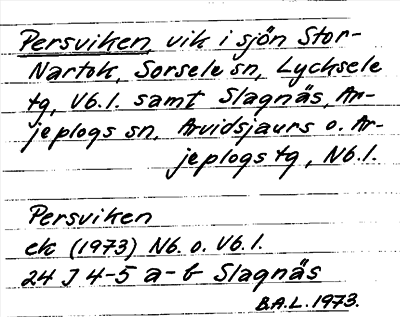 Persviken vik i sjön Stor-
Nartok, Sorsele sn, Lycksele
tg, Vb.l. samt Slagnäs, Ar-
jeplogs sn, Arvidsjaurs o. Ar-
jeplogs tg, Nb.l.
Persviken
ek (1973) Nb. o. Vb.l.
24 J 4-5 a-b Slagnäs
B.A.L. 1973.